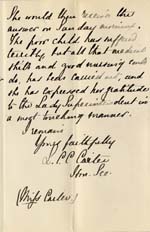 She would then receive the
answer on Sunday morning.
The poor child has suffered
terribly but all that medical
skill and good nursing could
do, has been carried out, and
she has expressed her gratitude
to the Lady Superintendent in
a most touching manner.
I remain
Yours faithfully
L. P. C. Carter
Hon. Sec
(Miss Carter)